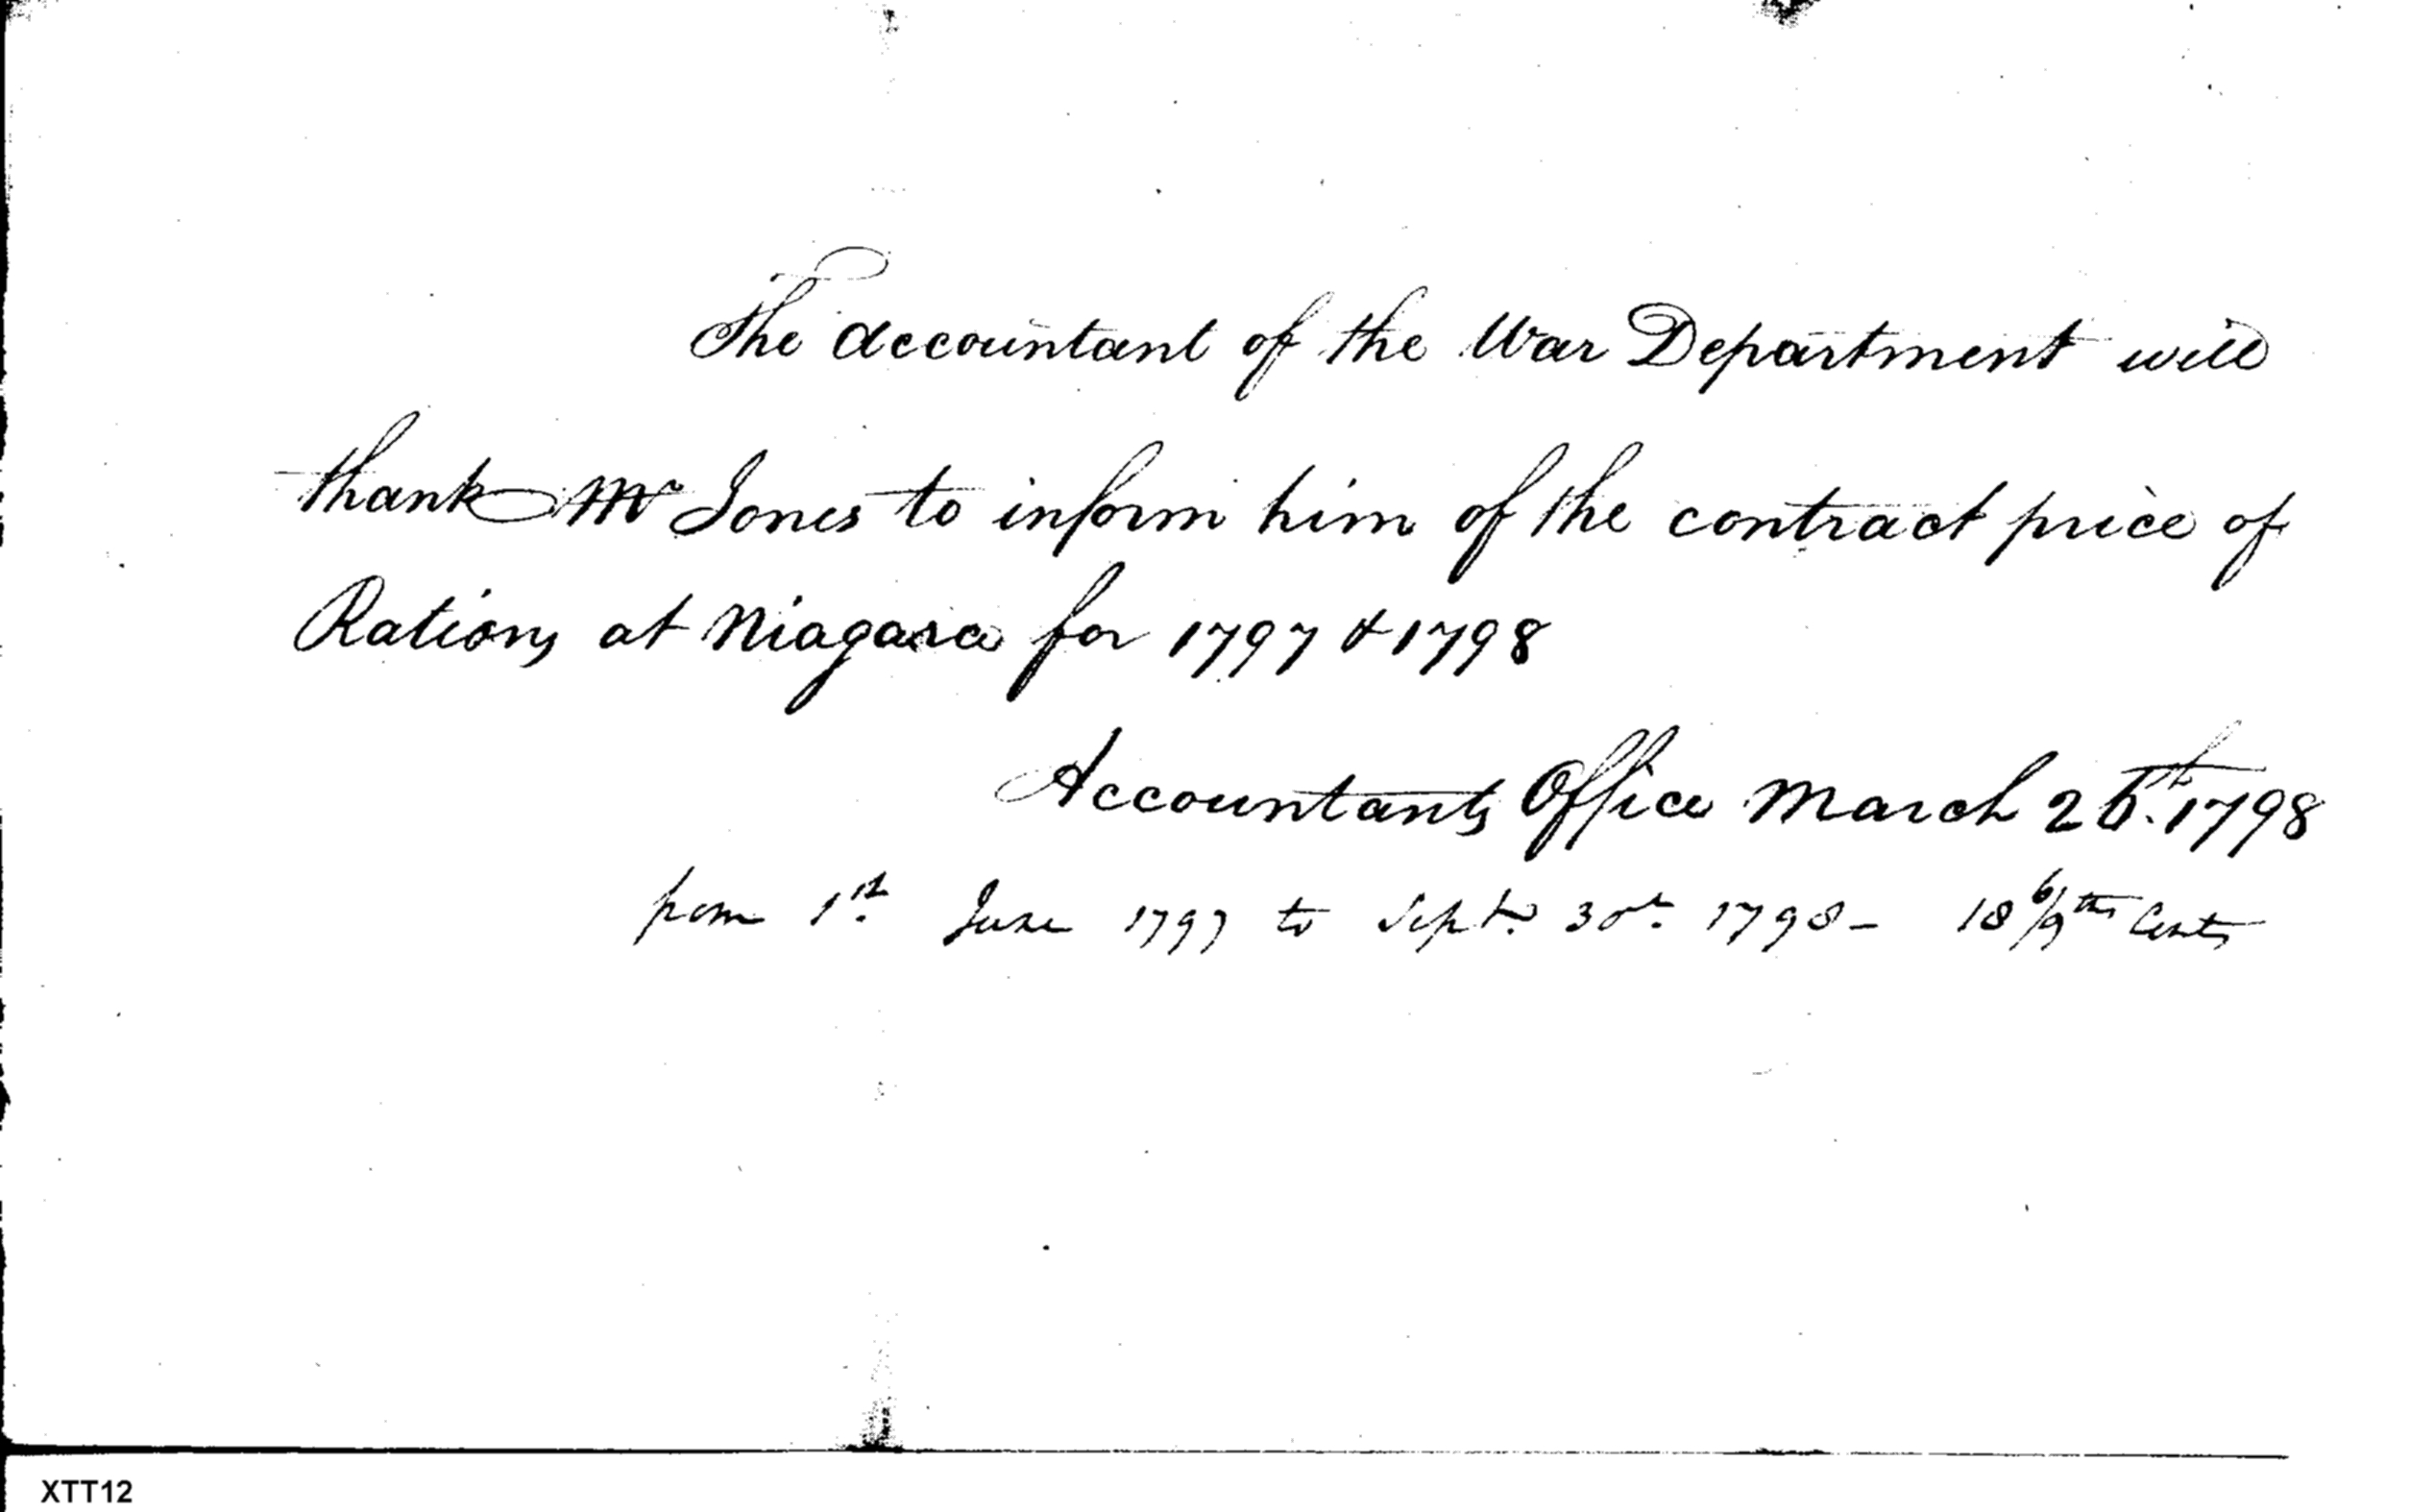 The Accountant of the War Department will
thank Mr Jones to inform him of the contract price of
Rations at Niagara for 1797 & 1798
Accountants Office March 26th. 1798
from 1st. June 1797 to Sept. 30th. 1798 - 18 6/9ths Cents
XTT12